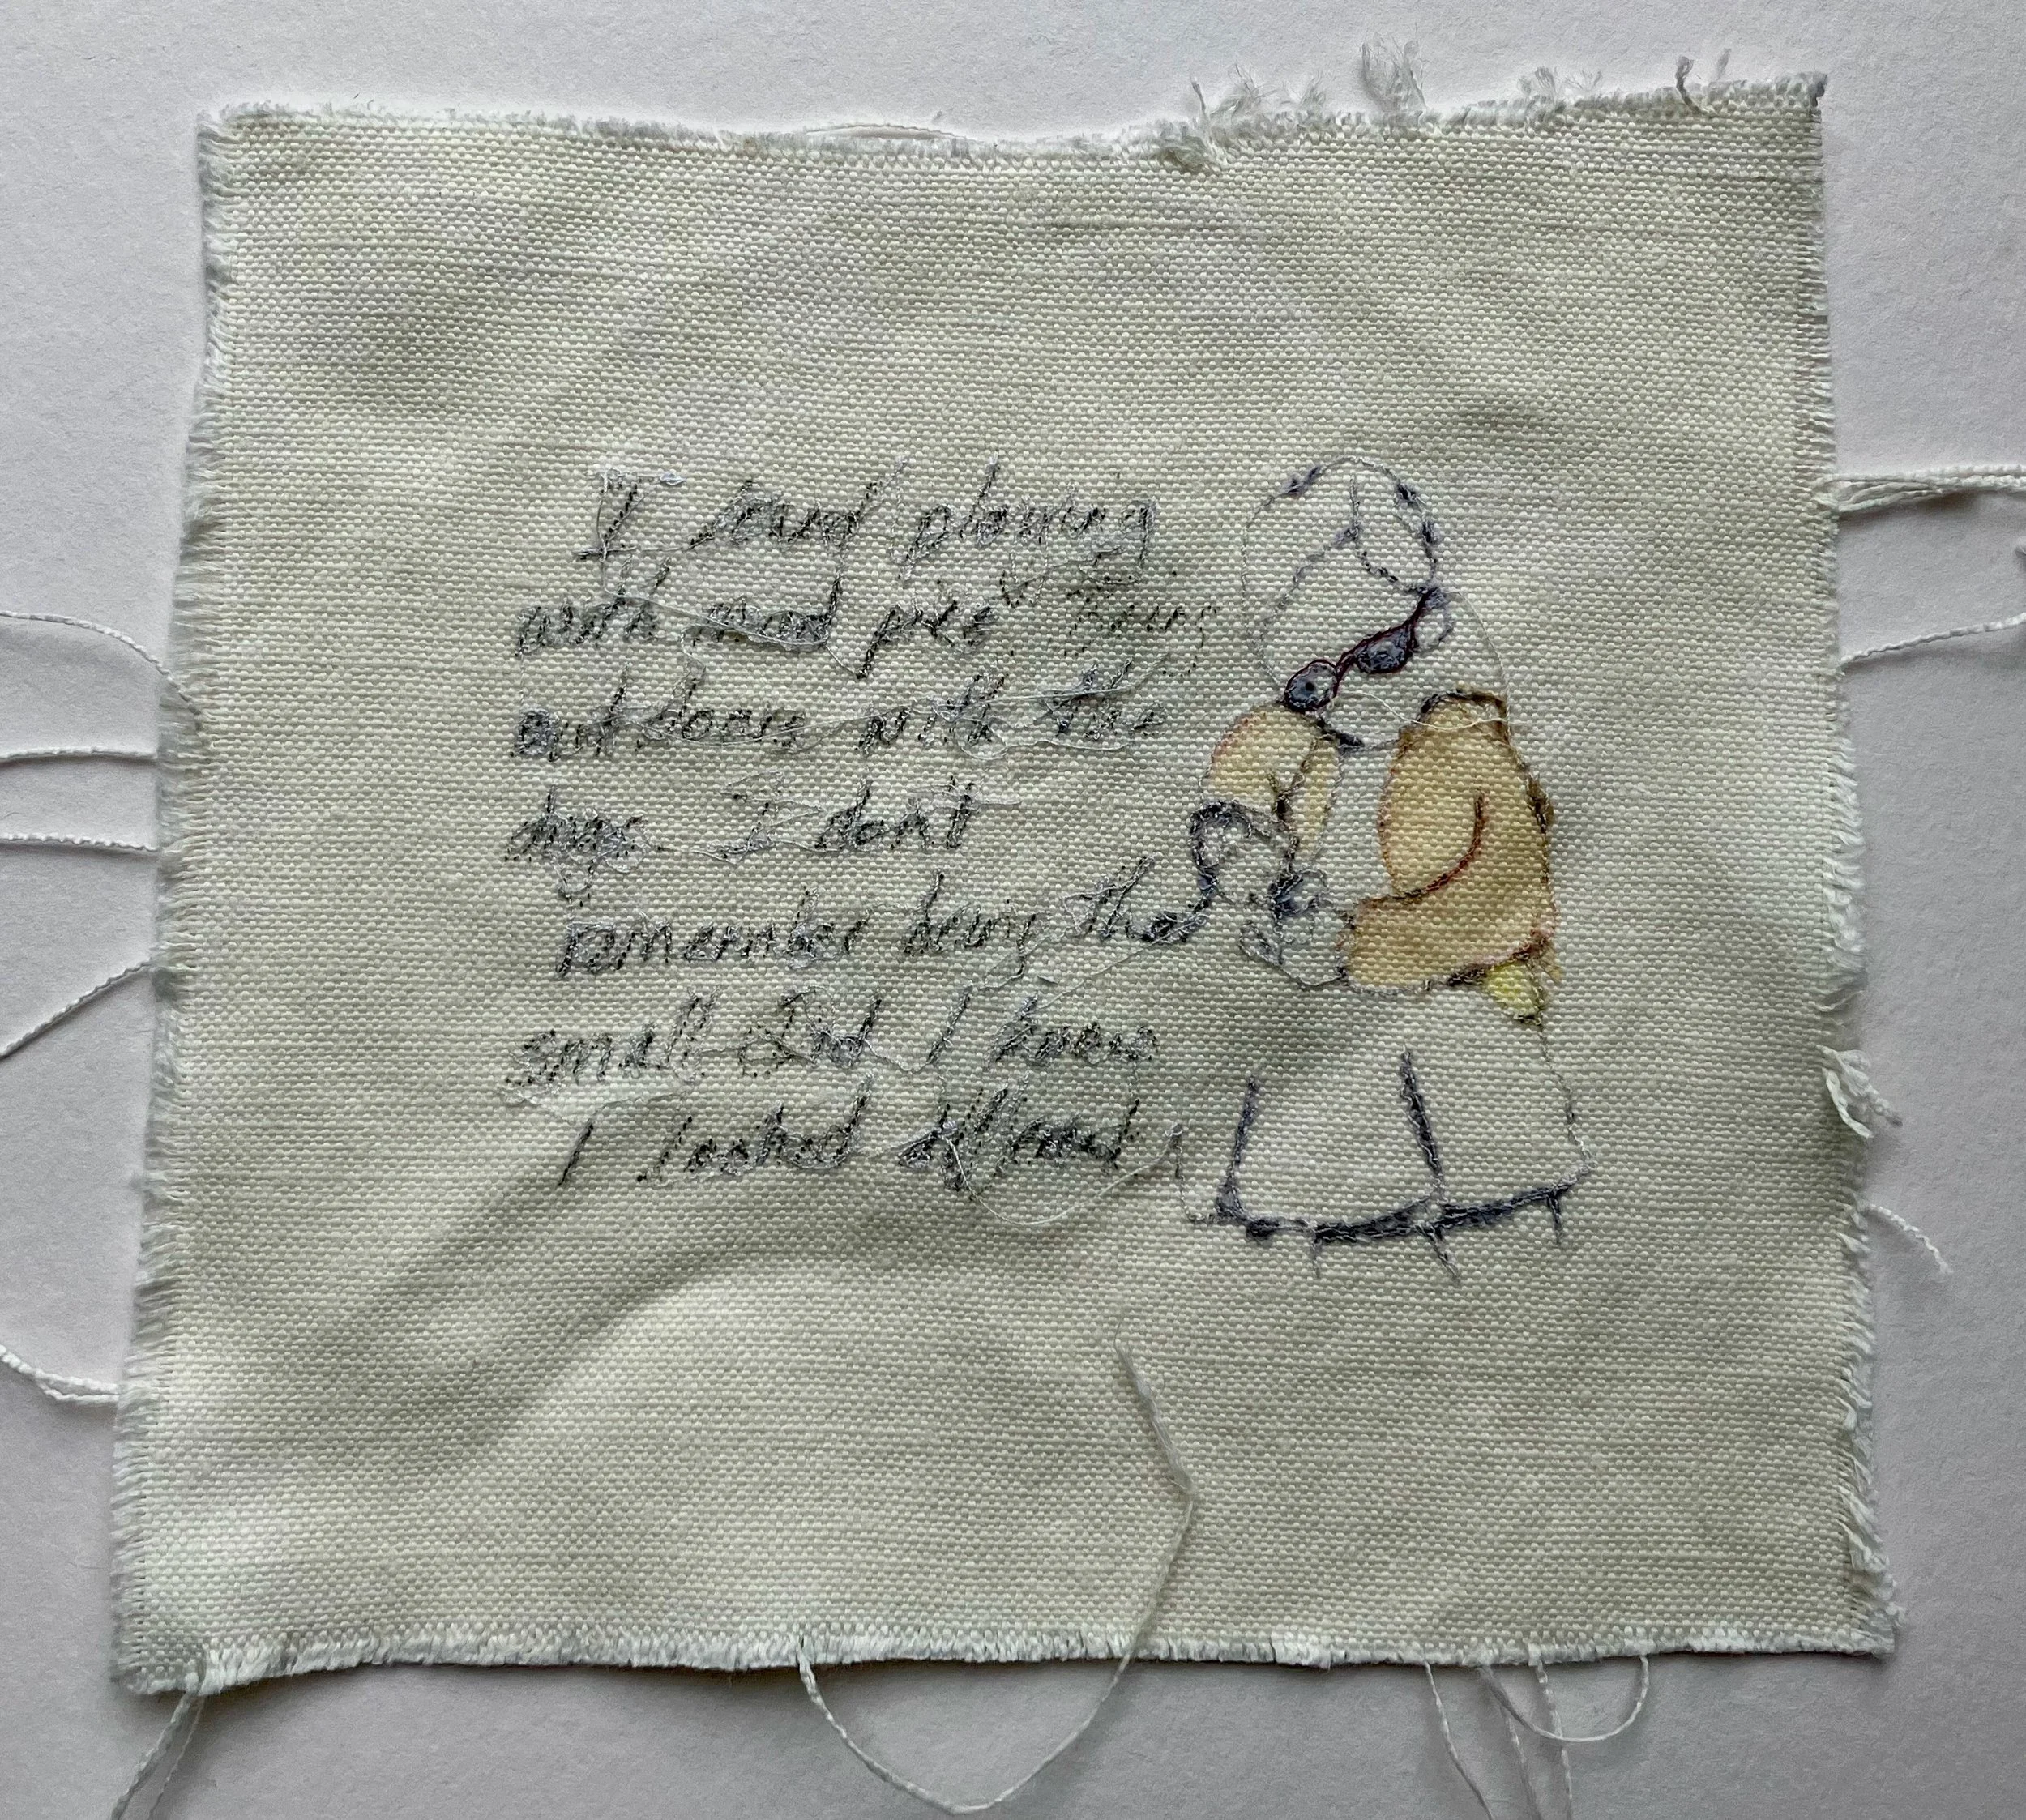 I loved playing
with mud pies being
outdoors with the
dogs I dont
remember being that
small Did I know
I looked different